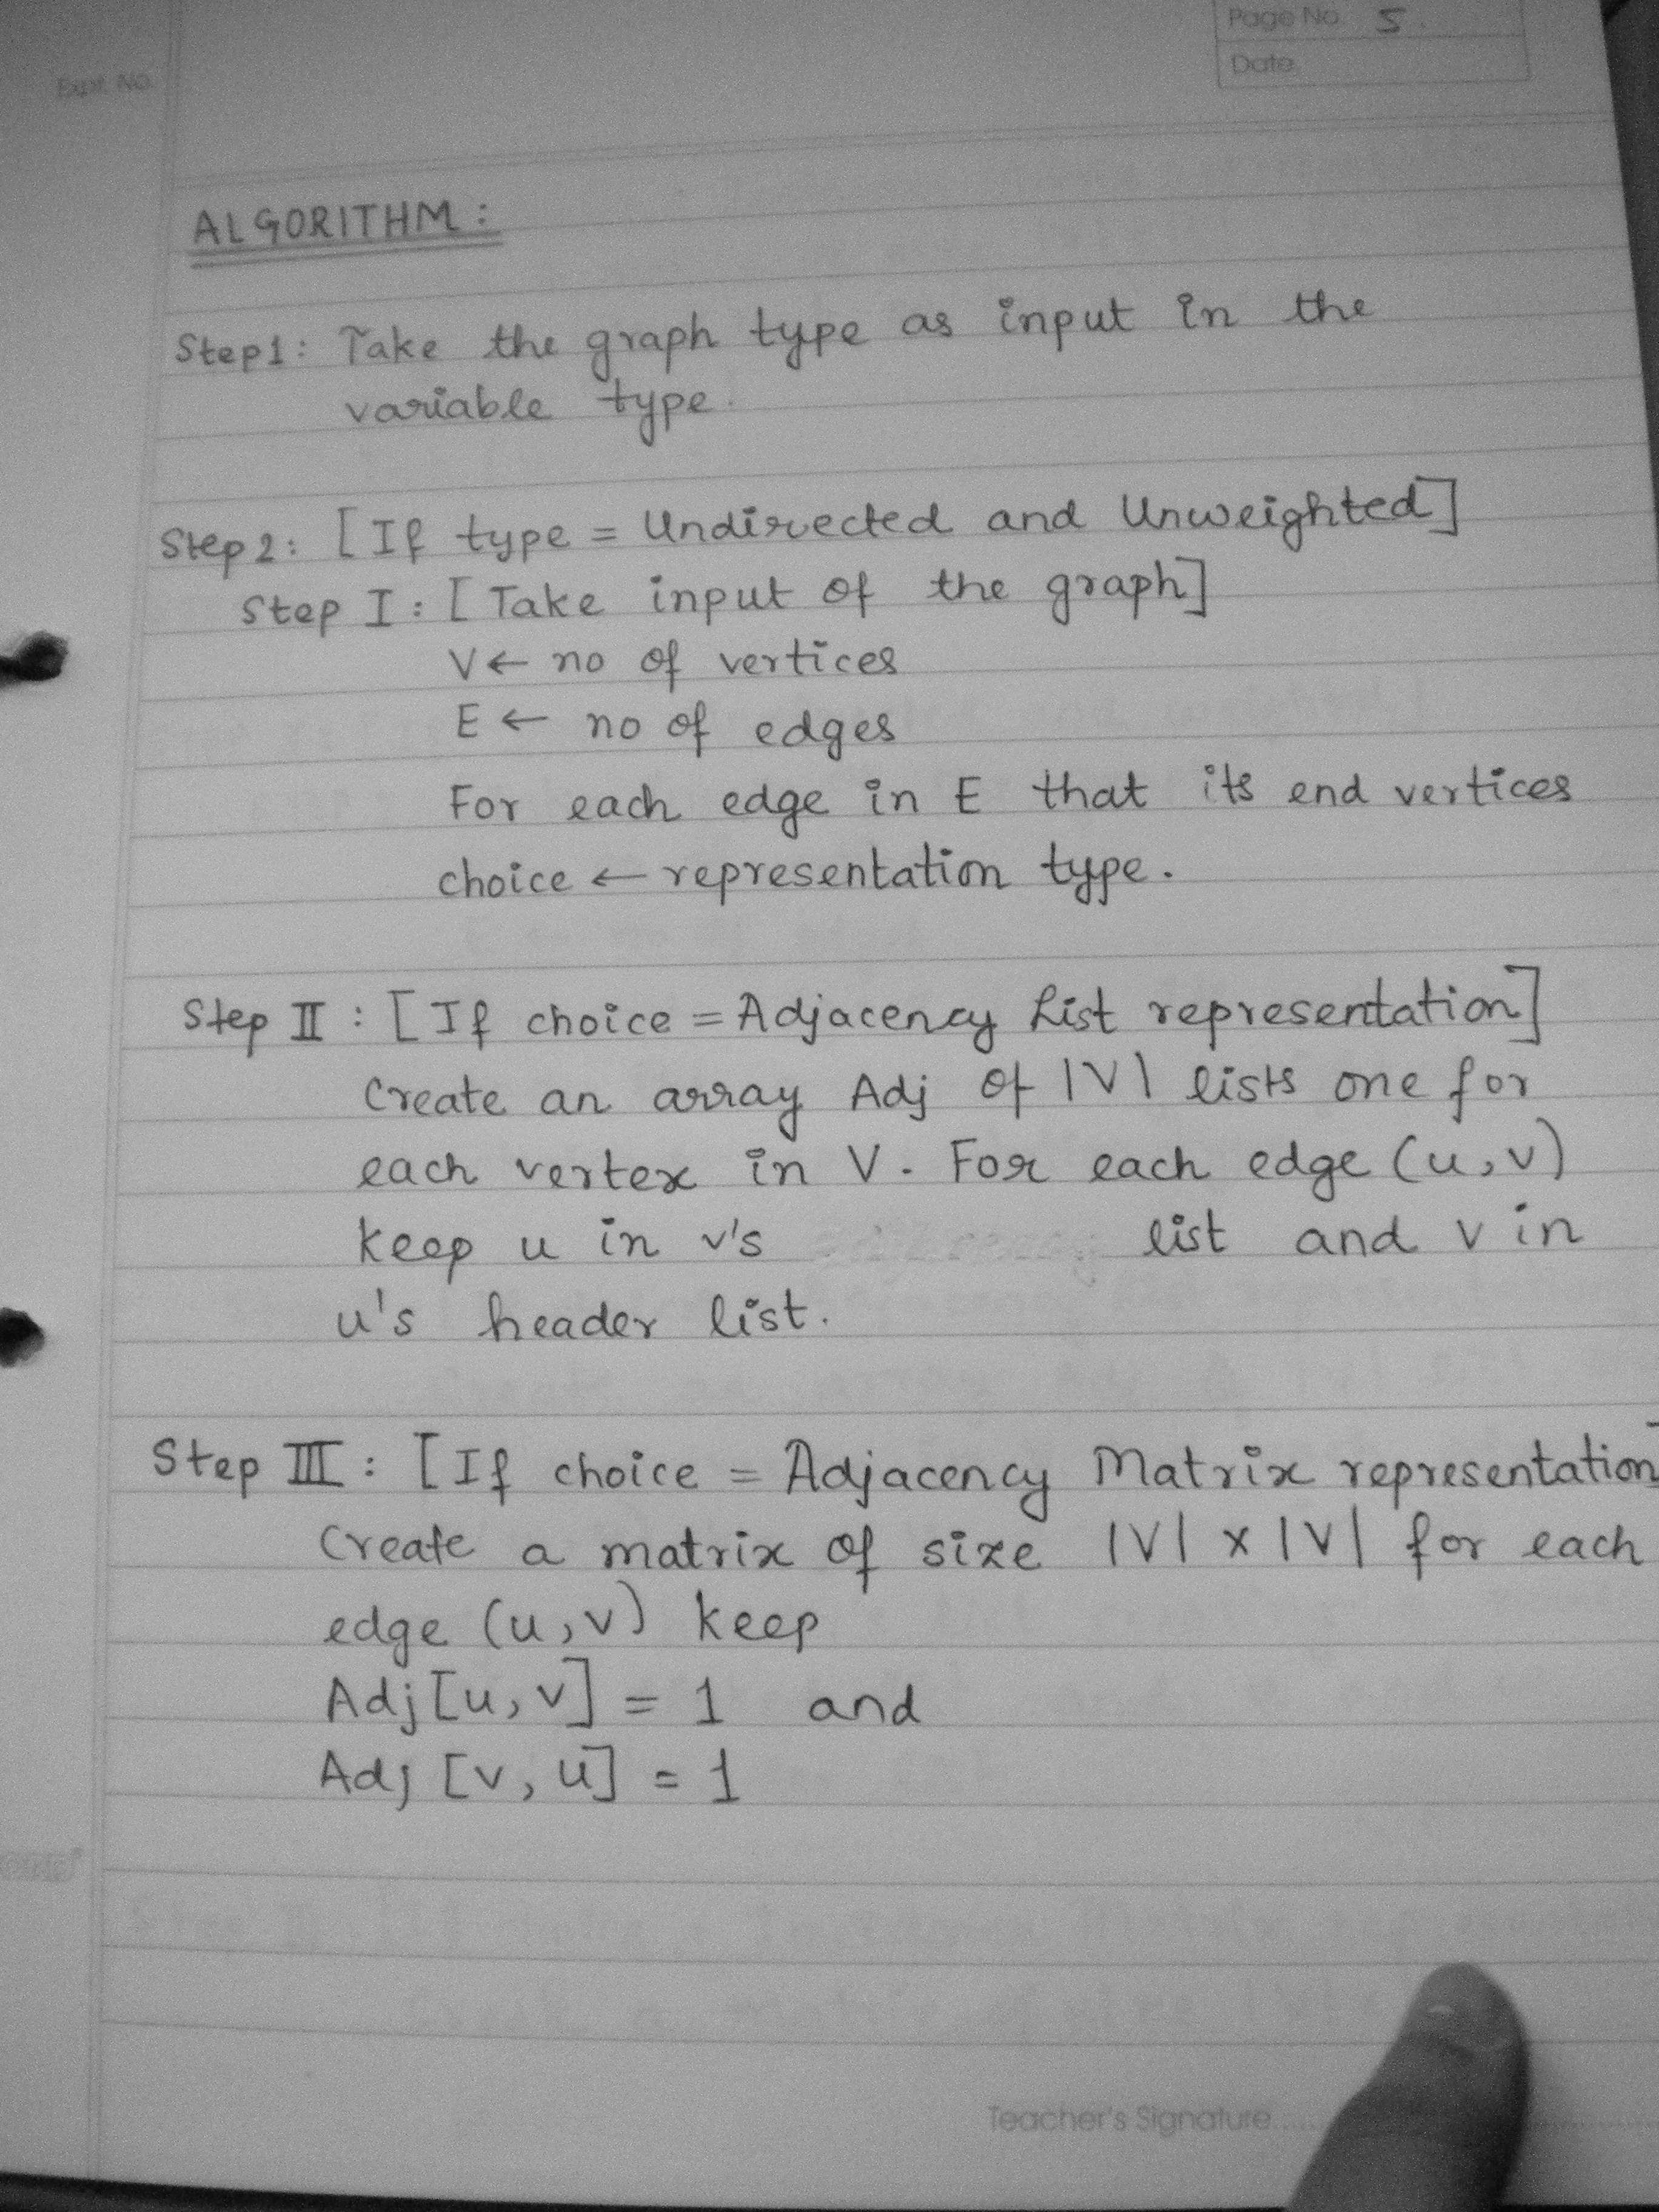 Page No. 5.
Date
Expt. No.
ALGORITHM:
Step1: Take the graph type as input in the
variable type.
Step2: [If type = Undirected and Unweighted]
Step I: [Take input of the graph]
V← no of vertices
E ← no of edges
For each edge in E that its end vertices
choice ← representation type.
Step II : [If choice = Adjacency List representation]
Create an array Adj of |V| lists one for
each vertex in V. For each edge (u,v)
keep u in v's list and v in
u's header list.
Step III : [If choice = Adjacency Matrix representation]
Create a matrix of size |V| x |V| for each
edge (u,v) keep
Adj[u,v] = 1 and
Adj [v,u] = 1
Teacher's Signature